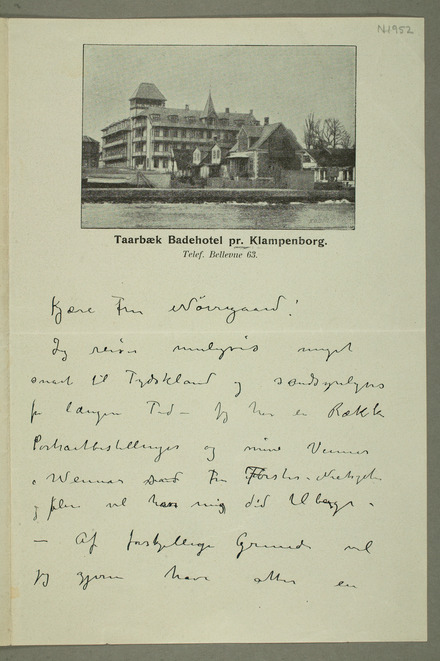 N1952
Taarbæk Badehotel pr. Klampenborg.
Telef. Bellevue 63.
Kjære Fru Nørregaard!
Jeg reiser muligvis meget
snart til Tydskland og sandsynligvis
for længere Tid – Jeg har en Række
Portraitbestillinger og mine Venner
i Weimar Fru Förster-Nietzsche
og flere vil ha mig did tilbage.
– Af forskjellige Grunde vil
jeg gjerne have atter en